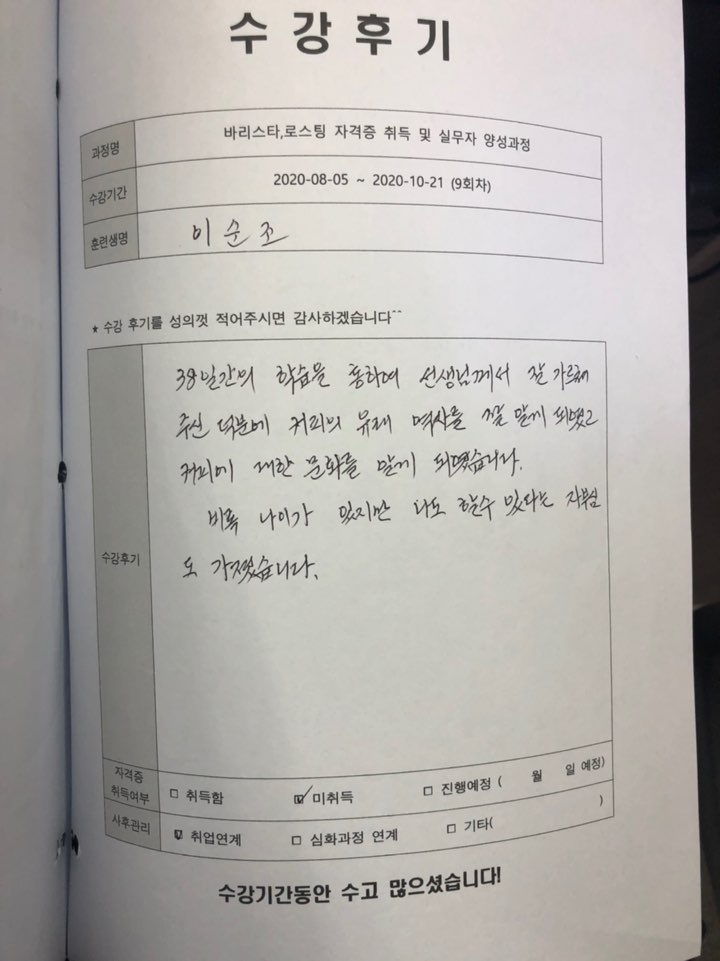 수강후기
과정명 바리스타,로스팅 자격증 취득 및 실무자 양성과정
수강기간 2020-08-05 ~ 2020-10-21 (9회차)
훈련생명 이순조
* 수강 후기를 성의껏 적어주시면 감사하겠습니다^^
38일간의 학습을 통하여 선생님께서 잘 가르쳐
주신 덕분에 커피의 유래 역사를 잘 알게 되였고
커피에 대한 문화를 알게 되였습니다.
비록 나이가 있지만 나도 할수 있다는 자부심
수강후기
도 가졌습니다.
자격증
취득여부 □ 취득함 ☑ 미취득 □ 진행예정 ( 월 일 예정)
사후관리 ☑ 취업연계 □ 심화과정 연계 □ 기타( )
수강기간동안 수고 많으셨습니다!